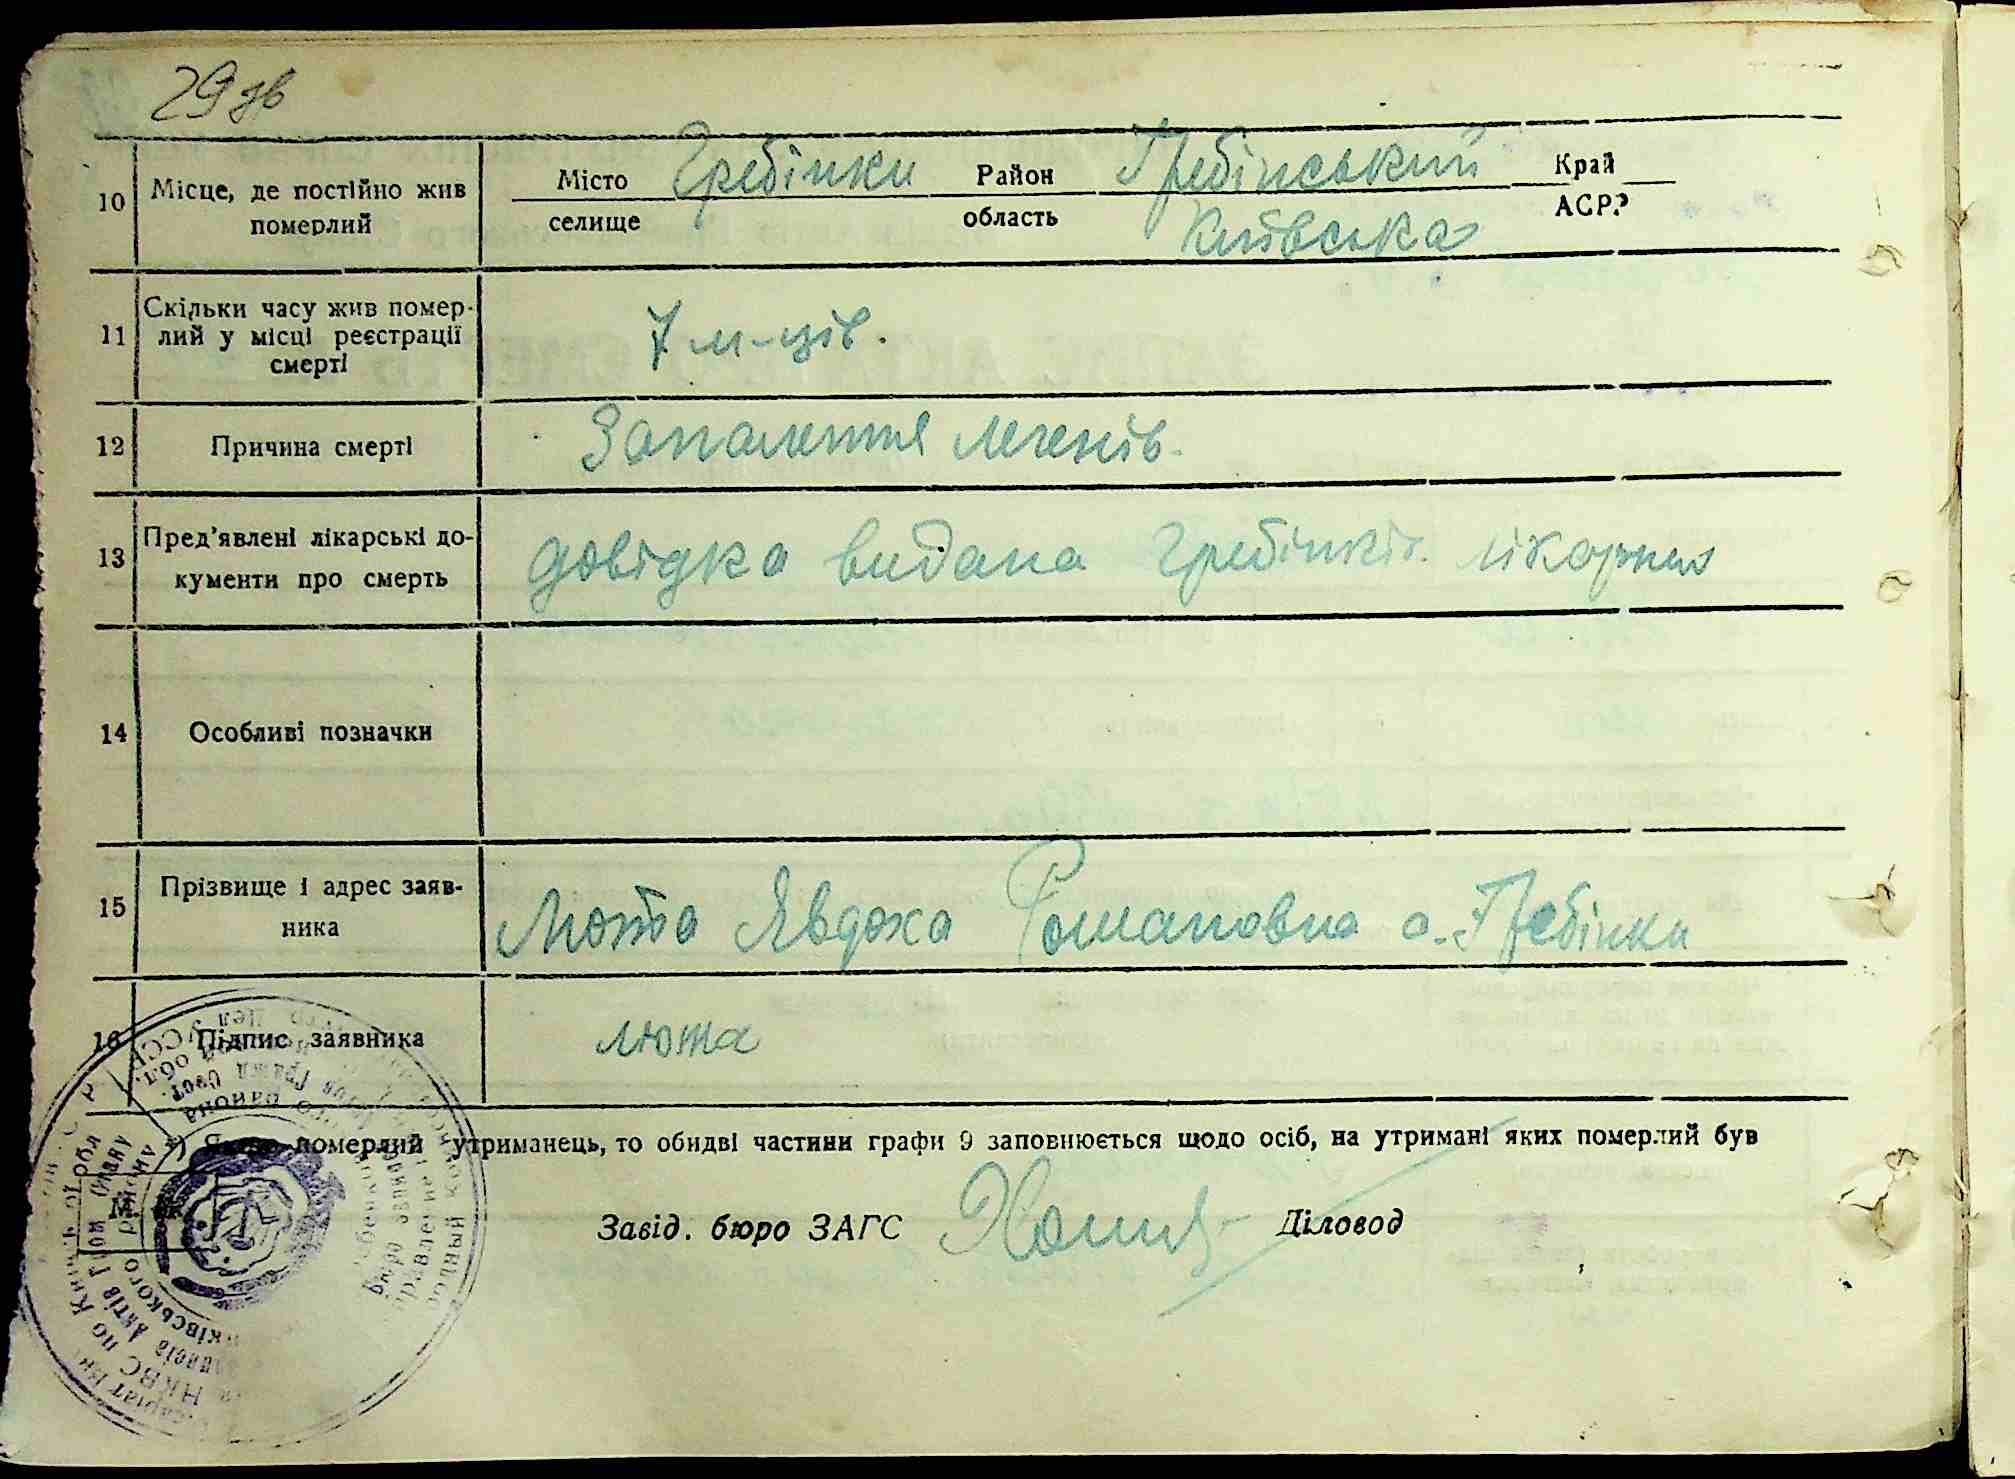 29 зв
10 Місце, де постійно жив померлий Місто селище Гребінки Район область Гребінський Київська Край АСРР
11 Скільки часу жив померлий у місці реєстрації смерті 7 м-ців.
12 Причина смерті Запалення легенів.
13 Пред'явлені лікарські документи про смерть довідка видана Гребінків. лікарнею
14 Особливі позначки
15 Прізвище і адрес заявника Люта Явдоха Романовна с. Гребінки
16 Підпис заявника Люта
*) Якщо померлий утриманець, то обидві частини графи 9 заповнюється щодо осіб, на утримані яких померлий був
Завід. бюро ЗАГС Діловод